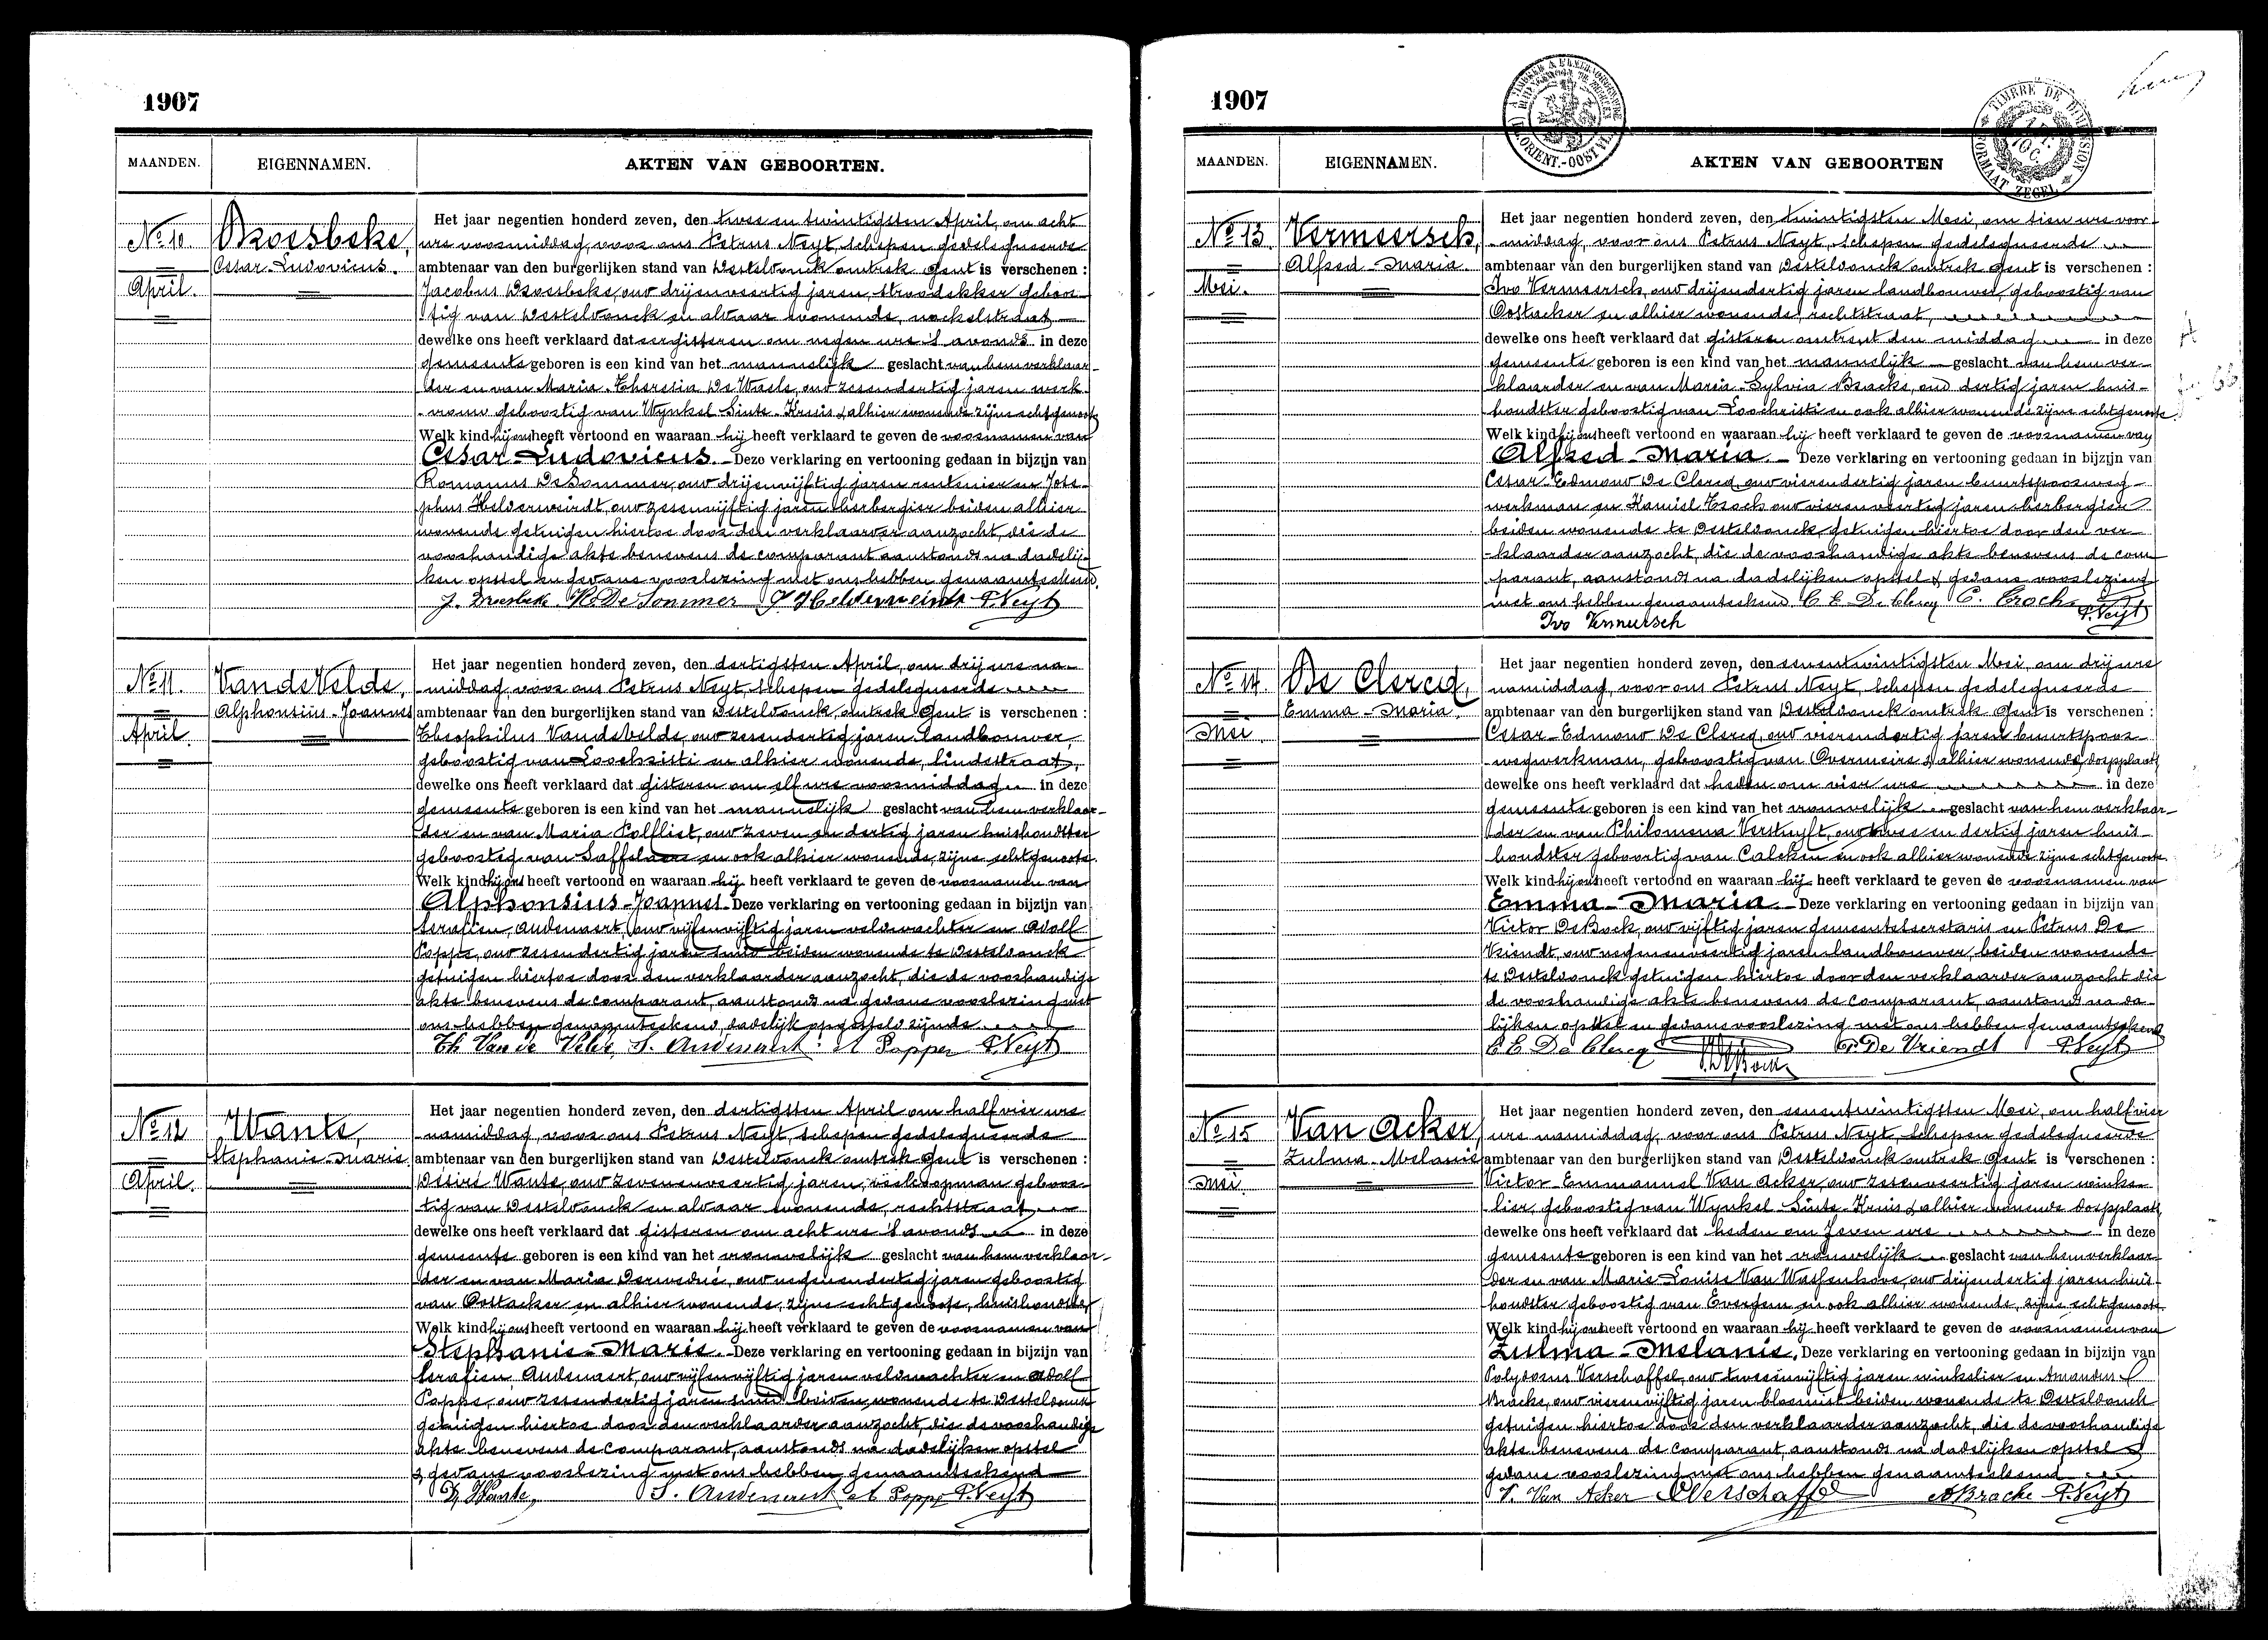 1907
MAANDEN. EIGENNAMEN. AKTEN VAN GEBOORTEN.
No 10. Droesbeke,
Cesar-Ludovicus.
April.
Het jaar negentien honderd zeven, den twee en twintigsten April, om acht
ure voormiddag, voor ons Petrus Neyt, schepen gedelegueerde
ambtenaar van den burgerlijken stand van Desteldonck omtrek Gent is verschenen :
Jacobus Droesbeke, oud drijenveertig jaren, stroodekker geboor-
tig van Desteldonck en aldaar wonende, nockelstraat
dewelke ons heeft verklaard dat eergisteren om negen ure 's avonds in deze
gemeente geboren is een kind van het mannelijk geslacht van hem verklaar-
der en van Maria-Theresia De Waele, oud zesendertig jaren werk-
vrouw geboortig van Wynkel Sinte-Kruis & alhier wonende zijne echtgenoote
Welk kind hij ons heeft vertoond en waaraan hij heeft verklaard te geven de voornamen van
Cesar-Ludovicus. Deze verklaring en vertooning gedaan in bijzijn van
Romanus De Sommer, oud drijenvijftig jaren rentenier en Jose-
phus Helderweirdt, oud zesenvijftig jaren herbergier beiden alhier
wonende getuigen hiertoe door den verklaarder aanzocht, die de
voorhandige akte benevens de comparant aanstonds na dadelij-
ken opstel en gedane voorlezing met ons hebben genaamteekend.
J. Droesbeke R. De Sommer J Helderweirdt P. Neyt
No 11. Van de Velde,
Alphonsius-Joannes
April.
Het jaar negentien honderd zeven, den dertigsten April, om drij ure na-
middag, voor ons Petrus Neyt, schepen gedelegueerde
ambtenaar van den burgerlijken stand van Desteldonck, omtrek Gent is verschenen :
Theophilus Van de Velde, oud zesendertig jaren landbouwer,
geboortig van Loochristi en alhier wonende, lindestraat,
dewelke ons heeft verklaard dat gisteren om elf ure voormiddag in deze
gemeente geboren is een kind van het mannelijk geslacht van hem verklaar-
der en van Maria Polfliet, oud zeven en dertig jaren huishoudster
geboortig van Saffelaere en ook alhier wonende, zijne echtgenoote.
Welk kind hij ons heeft vertoond en waaraan hij heeft verklaard te geven de voornamen van
Alphonsius-Joannes Deze verklaring en vertooning gedaan in bijzijn van
Serafien Audenaert, oud vijfenvijftig jaren veldwachter en Adolf
Poppe, oud zesendertig jaren smid beiden wonende te Desteldonck
getuigen hiertoe door den verklaarder aanzocht, die de voorhandige
akte benevens de comparant, aanstonds na gedane voorlezing met
ons hebben genaamteekend, dadelijk opgesteld zijnde
Th Van de Velde, S. Audenaert A Poppe P. Neyt
No 12 Wante,
Stephanie-Marie.
April.
Het jaar negentien honderd zeven, den dertigsten April om half vier ure
namiddag, voor ons Petrus Neyt, schepen gedelegueerde
ambtenaar van den burgerlijken stand van Desteldonck omtrek Gent is verschenen :
Désiré Wante, oud zevenenveertig jaren, koopman geboor-
tig van Desteldonck en aldaar wonende, rechtstraat
dewelke ons heeft verklaard dat gisteren om acht ure 's avonds in deze
gemeente geboren is een kind van het vrouwelijk geslacht van hem verklaar-
der en van Maria oud negenendertig jaren geboortig
van Oostacker en alhier wonende, zijne echtgenoote, huishoudster
Welk kind hij ons heeft vertoond en waaraan hij heeft verklaard te geven de voornamen van
Stephanie-Marie. Deze verklaring en vertooning gedaan in bijzijn van
Serafien Audenaert, oud vijfenvijftig jaren veldwachter en Adolf
Poppe, oud zesendertig jaren smid beiden wonende te Desteldonck
getuigen hiertoe door den verklaarder aanzocht, die de voorhandige
akte benevens de comparant, aanstonds na dadelijken opstel
& gedane voorlezing met ons hebben genaamteekend
D, Wante, S. Audenaert A Poppe P. Neyt
1907
MAANDEN. EIGENNAMEN. AKTEN VAN GEBOORTEN
TIMBRE DE DIMENSION
FORMAAT ZEGEL
No 13. Vermeersch,
Alfred-Maria
Mei.
Het jaar negentien honderd zeven, den twintigsten Mei, om tien ure voor-
middag, voor ons Petrus Neyt, schepen gedelegueerde
ambtenaar van den burgerlijken stand van Desteldonck omtrek Gent is verschenen :
Ivo Vermeersch, oud drijendertig jaren landbouwer, geboortig van
Oostacker en alhier wonende, rechtstraat,
dewelke ons heeft verklaard dat gisteren omtrent den middag in deze
gemeente geboren is een kind van het mannelijk geslacht van hem ver-
klaarder en van Maria-Sylvia Braeke, oud dertig jaren huis-
houdster geboortig van Loochristi en ook alhier wonende zijne echtgenoote.
Welk kind hij ons heeft vertoond en waaraan hij heeft verklaard te geven de voornamen van
Alfred-Maria. Deze verklaring en vertooning gedaan in bijzijn van
Cesar-Edmond De Clercq, oud vierendertig jaren buurtspoorweg-
werkman en Kamiel Crock oud vierenveertig jaren herbergier
beiden wonende te Desteldonck, getuigen hiertoe door den ver-
klaarder aanzocht, die de voorhandige akte benevens de com-
parant, aanstonds na dadelijken opstel & gedane voorlezing
met ons hebben genaamteekend. C E De Clercq C. Crock P. Neyt
Ivo Vermeersch
No 14. De Clercq,
Emma-Maria.
Mei.
Het jaar negentien honderd zeven, den eenentwintigsten Mei, om drij ure
namiddag, voor ons Petrus Neyt, schepen gedelegueerde
ambtenaar van den burgerlijken stand van Desteldonck omtrek Gent is verschenen :
Cesar-Edmond De Clercq, oud vierendertig jaren buurtspoor-
wegwerkman, geboortig van Overmeire & alhier wonende, dorpplaats
dewelke ons heeft verklaard dat heden om vier ure in deze
gemeente geboren is een kind van het vrouwelijk geslacht van hem verklaar-
der en van Philomena Verstuyft, oud twee en dertig jaren huis-
houdster geboortig van Calcken en ook alhier wonende zijne echtgenoote.
Welk kind hij ons heeft vertoond en waaraan hij heeft verklaard te geven de voornamen van
Emma-Maria. Deze verklaring en vertooning gedaan in bijzijn van
Victor De Bock, oud vijftig jaren gemeentesecretaris en Petrus De
Vriendt, oud negenenveertig jaren landbouwer, beiden wonende
te Desteldonck getuigen hiertoe door den verklaarder aanzocht die
de voorhandige akte benevens de comparant, aanstonds na da-
lijken opstel en gedane voorlezing met ons hebben genaamteekend
C E De Clercq P. De Vriendt P. Neyt
No 15 Van Acker,
Zulma-Melanie
Mei.
Het jaar negentien honderd zeven, den eenentwintigsten Mei, om half vier
ure namiddag, voor ons Petrus Neyt, schepen gedelegueerde
ambtenaar van den burgerlijken stand van Desteldonck omtrek Gent is verschenen :
Victor-Emmanuel Van Acker, oud zesenveertig jaren winke-
lier, geboortig van Wynkel Sinte-Kruis & alhier wonende dorpplaats,
dewelke ons heeft verklaard dat heden om zeven ure in deze
gemeente geboren is een kind van het vrouwelijk geslacht van hem verklaar-
der en van Marie-Louise Van Waesenhove, oud drijendertig jaren huis-
houdster geboortig van Evergem en ook alhier wonende, zijne echtgenoote.
Welk kind hij ons heeft vertoond en waaraan hij heeft verklaard te geven de voornamen van
Zulma-Melanie, Deze verklaring en vertooning gedaan in bijzijn van
Polydorus Verschaffel, oud tweeenvijftig jaren winkelier en Amandus
Bracke, oud vierenvijftig jaren bloemist beiden wonende te Desteldonck
getuigen hiertoe door den verklaarder aanzocht, die de voorhandige
akte benevens de comparant, aanstonds na dadelijken opstel &
gedane voorlezing met ons hebben genaamteekend
V. Van Acker Verschaffel A Bracke P. Neyt